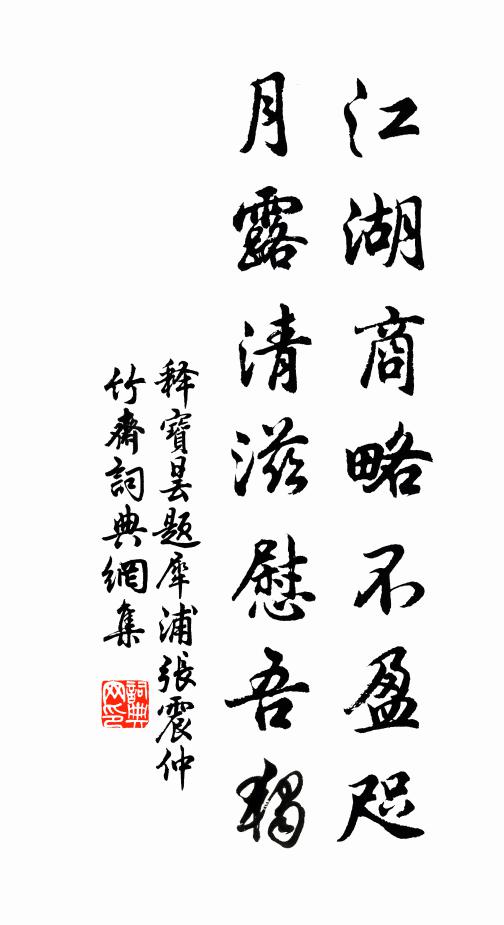 江湖商略不盈咫
月露清滋慰吾獨
释寶曇题犀浦張震仲
竹齋詞典網集
詞典
网印